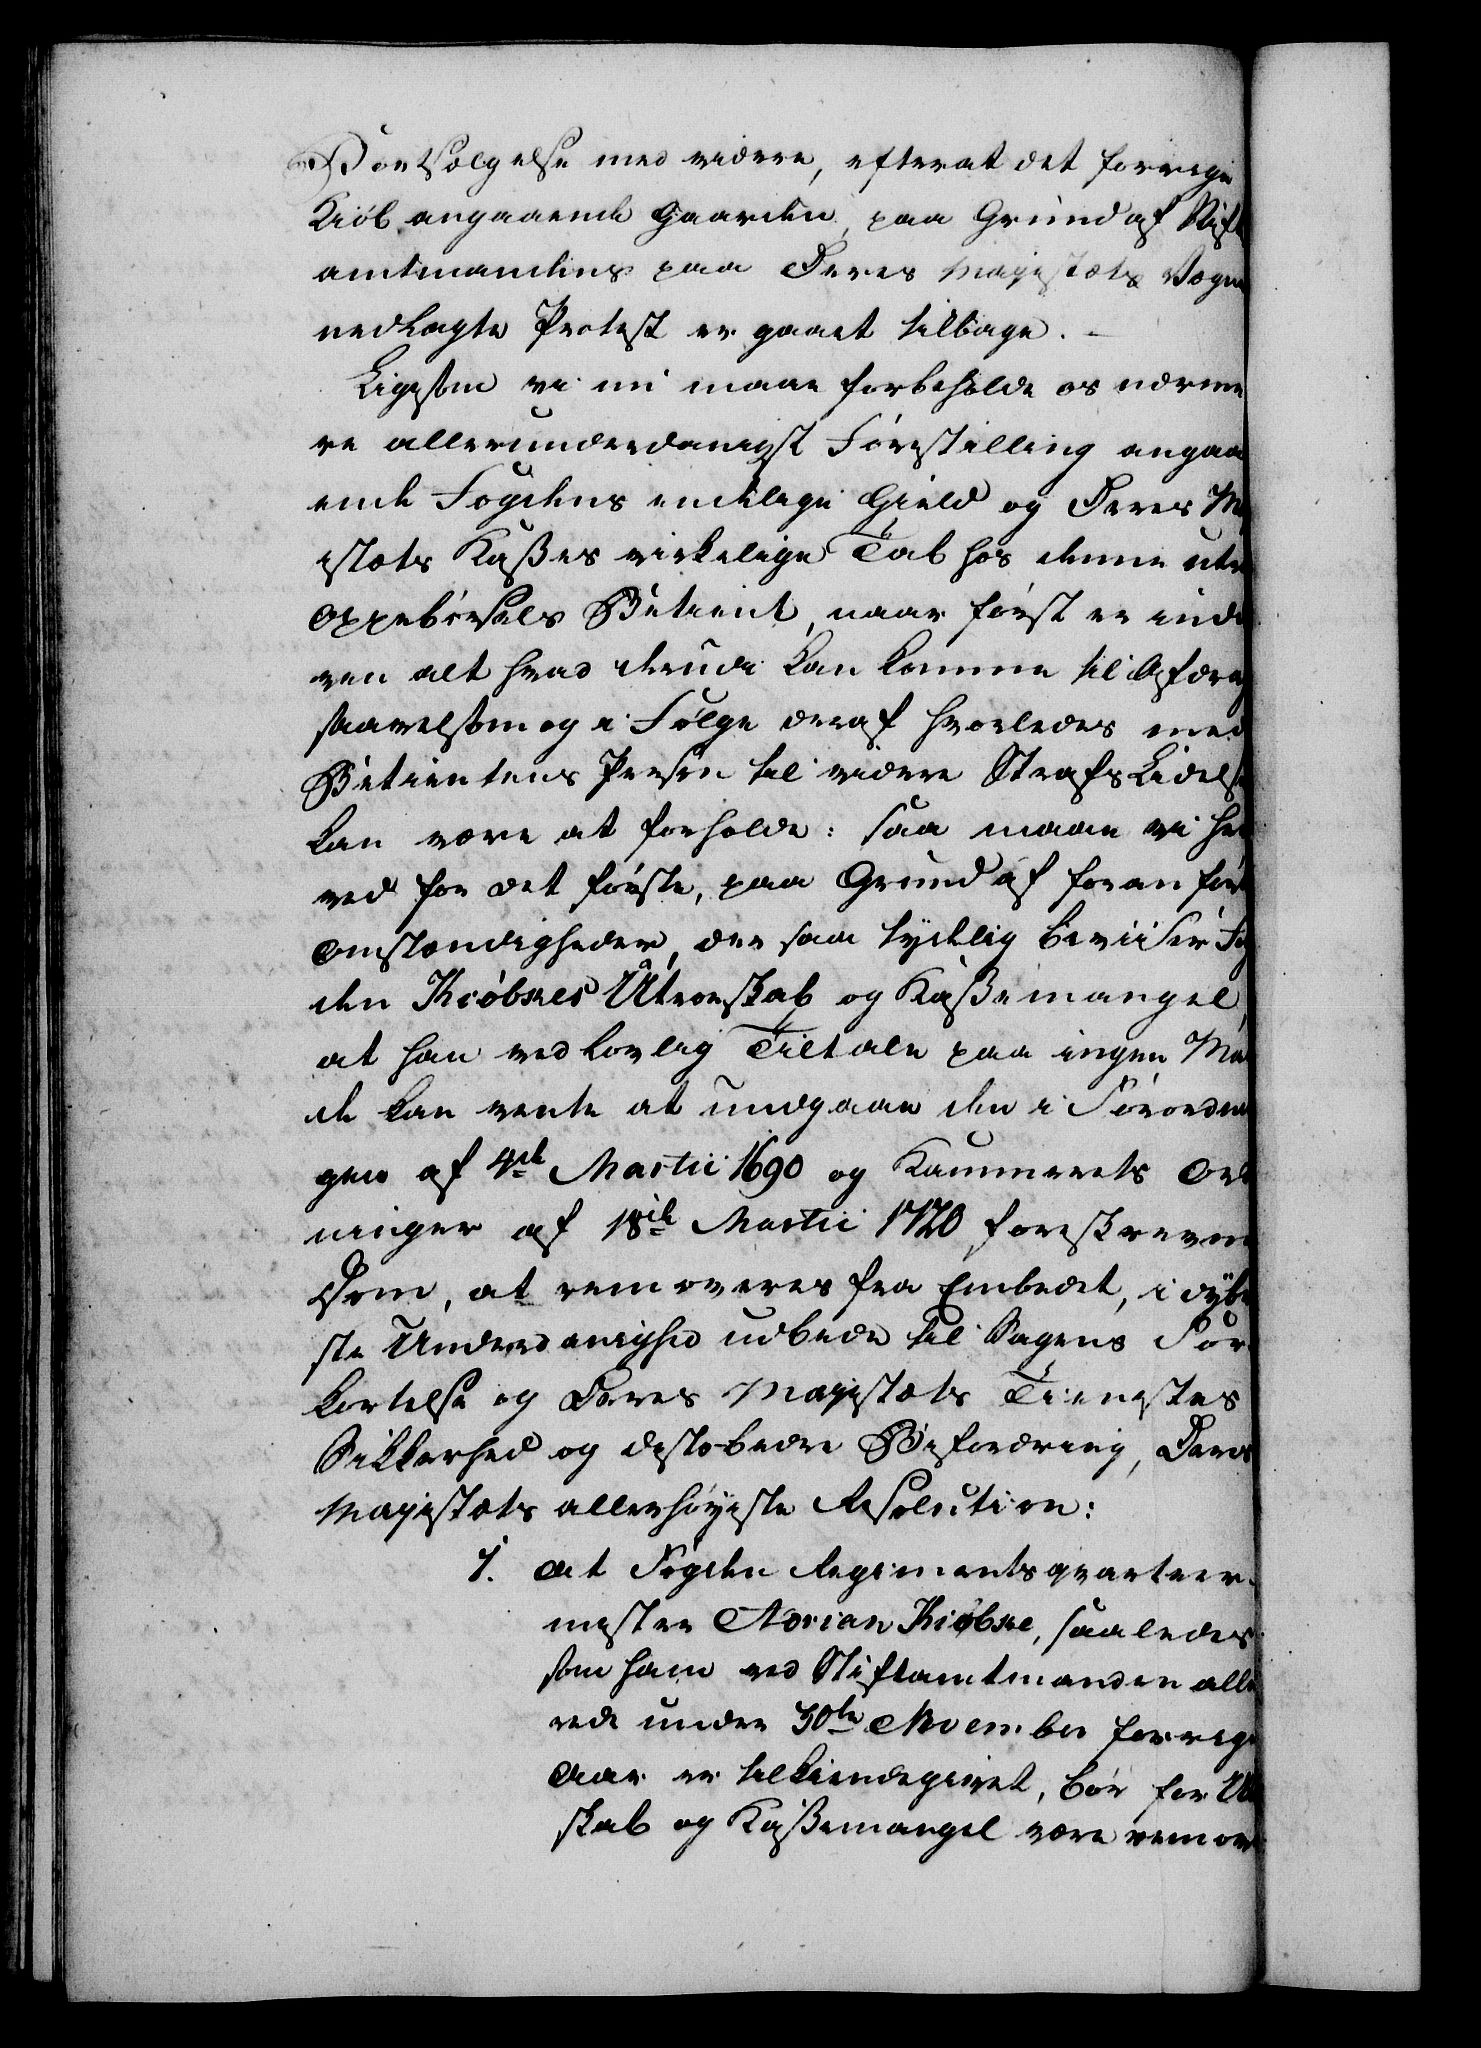 Bortsølgelse med videre, efterat det forrige
Kiøb angaaende Gaarden, paa Grund af Stift
amtmandens paa Deres Majestæts Vegne
nedlagte Protest er gaaet tilbage. –
Ligesom vi nu maae forbeholde os nærme
re allerunderdanigst Forestilling angaa
ende Fogdens endelige Gield og Deres Ma
jestæts Kasses virkelige Tab hos denne utroe
Oppebørsels Betient, naar først er indk
ven alt hvad derudi kan komme til Afdrag
saavelsom og i Følge deraf hvorledes med
Betientens Person til videre Strafs Lidelse
kan være at forholde: saa maae vi her
ved for det første, paa Grund af foranførte
Omstændigheder, der saa tydelig beviiser Fog
den Kiøbkes Utroeskab og Kassemangel,
at han ved lovlig Tiltale paa ingen Maa
de kan vente at undgaae den i Forordnin
gen af 4de Martii 1690 og Kammerets Ord
ninger af 18de Martii 1720 foreskrevne
Dom, at removeres fra Embedet, i dybe
ste Underdanighed udbede til Sagens For
kortelse og Deres Majestæts Tienestes
Sikkerhed og destobedre Befordring, Deres
Majestæts allerhøyeste Resolution:
1. At Fogden Regimentsqvarteer-
mester Adrian Kiøbke, saaledes
som ham ved Stiftamtmanden alle
rede under 30te November forrige
Aar er tilkiendegivet, bør for Utroe
skab og Kassemangel være remove